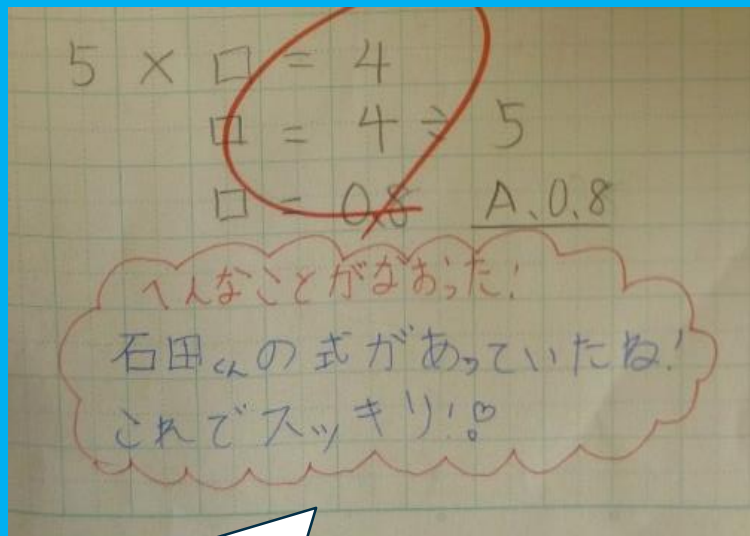 5 × □ = 4
□ = 4 ÷ 5
□ = 0.8 A、0.8
へんなことがなおった!
石田くんの式があっていたね!
これでスッキリ!♡